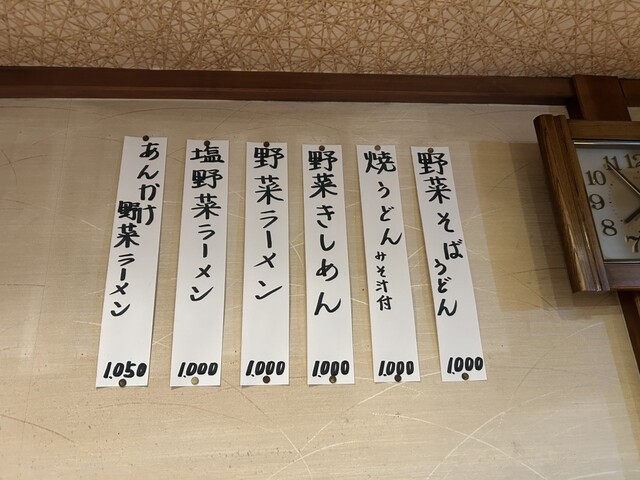 野菜そばうどん
1.000
焼うどんみそ汁付
1.000
野菜きしめん
1.000
野菜ラーメン
1.000
塩野菜ラーメン
1.000
あんかけ野菜ラーメン
1.050
11
10
9
8
7